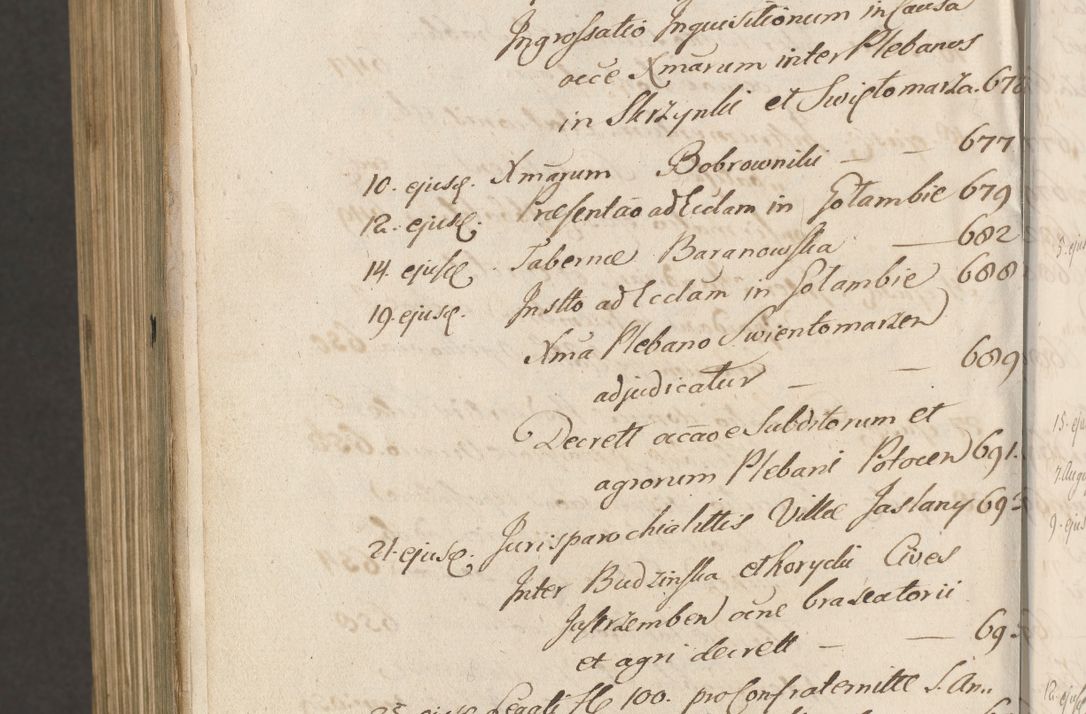 Ingrossatio Inquisitionum in Causa
occe Xmarum inter Plebanos
in Skrzynki et Swiętomarza. 67
10. ejusq. Xmarum Bobrowniki — — 677
12. ejusq. Præsentao ad Ecclam in Gołambie 679
14. ejusq. Tabernæ Baranowska — 682
19. ejusq. Instto ad Ecclam in Gołambie 688
Xma Plebano Swientomarzen
adjudicatur — — 689
Decrett occaoe Subditorum et
agrorum Plebani Potocen 691.
21. ejusq. Juris parochialittis Villæ Jaslany 69
Inter Budzinska et Korycki Cives
Jastrzemben ocne braxatorii
et agri decrett — — 69
25. ejusq. Legati fl 100. pro Confraternitte S. An..
3. eju
15. eju
7. Aug
9. ejus
12. ejus